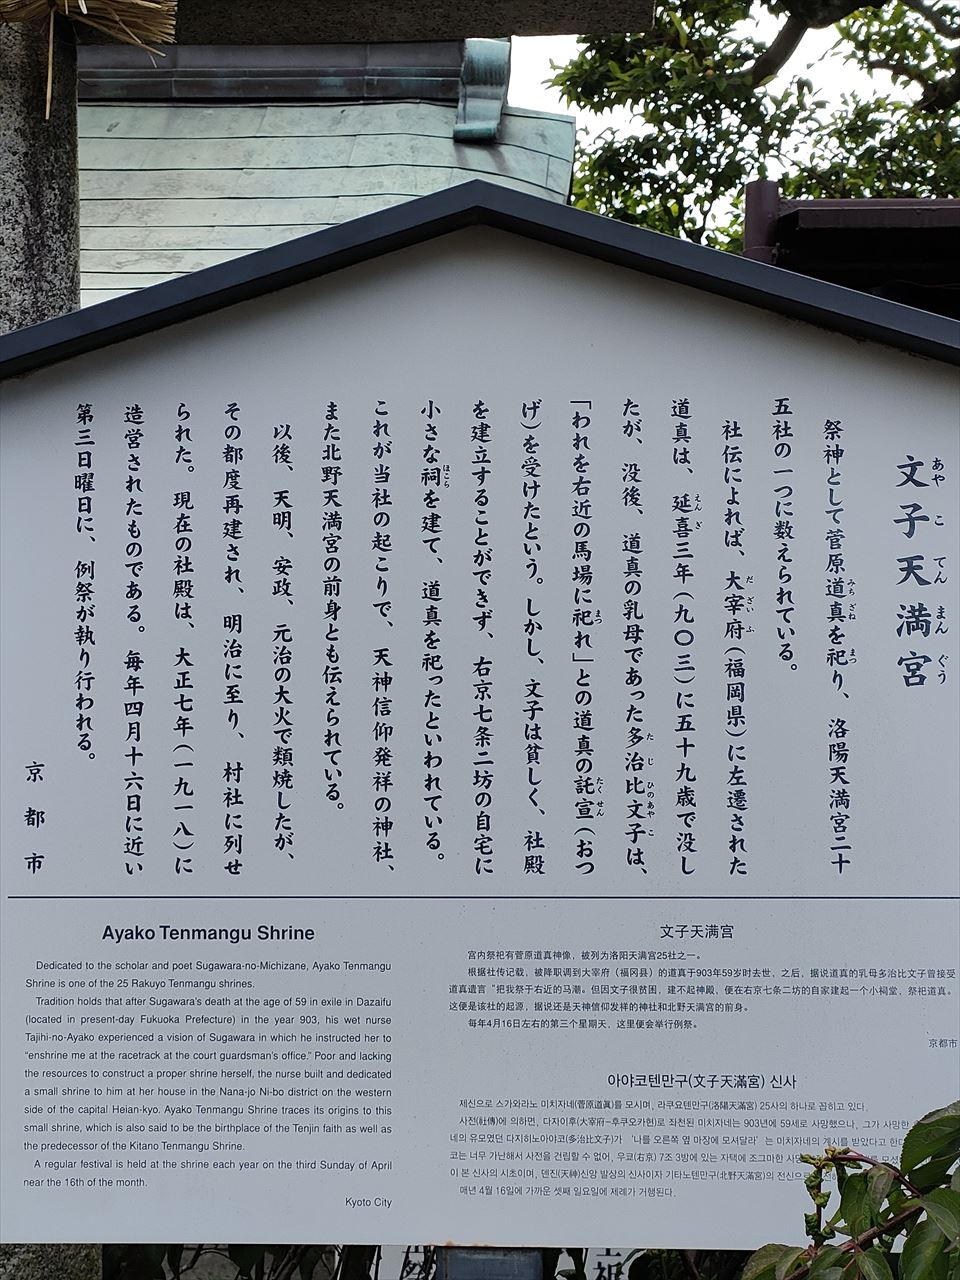 文子天満宮
祭神として菅原道真を祀り、洛陽天満宮二十
五社の一つに数えられている。
社伝によれば、大宰府（福岡県）に左遷された
道真は、延喜三年（九〇三）に五十九歳で没し
たが、没後、道真の乳母であった多治比文子は、
「われを右近の馬場に祀れ」との道真の託宣（おつ
げ）を受けたという。しかし、文子は貧しく、社殿
を建立することができず、右京七条二坊の自宅に
小さな祠を建て、道真を祀ったといわれている。
これが当社の起こりで、天神信仰発祥の神社、
また北野天満宮の前身とも伝えられている。
以後、天明、安政、元治の大火で類焼したが、
その都度再建され、明治に至り、村社に列せ
られた。現在の社殿は、大正七年（一九一八）に
造営されたものである。毎年四月十六日に近い
第三日曜日に、例祭が執り行われる。
京都市
Ayako Tenmangu Shrine
Dedicated to the scholar and poet Sugawara-no-Michizane, Ayako Tenmangu
Shrine is one of the 25 Rakuyo Tenmangu shrines.
Tradition holds that after Sugawara's death at the age of 59 in exile in Dazaifu
(located in present-day Fukuoka Prefecture) in the year 903, his wet nurse
Tajihi-no-Ayako experienced a vision of Sugawara in which he instructed her to
“enshrine me at the racetrack at the court guardsman's office.” Poor and lacking
the resources to construct a proper shrine herself, the nurse built and dedicated
a small shrine to him at her house in the Nana-jo Ni-bo district on the western
side of the capital Heian-kyo. Ayako Tenmangu Shrine traces its origins to this
small shrine, which is also said to be the birthplace of the Tenjin faith as well as
the predecessor of the Kitano Tenmangu Shrine.
A regular festival is held at the shrine each year on the third Sunday of April
near the 16th of the month.
Kyoto City
文子天满宫
宫内祭祀有菅原道真神像，被列为洛阳天满宫25社之一。
根据社传记载，被降职调到大宰府（福冈县）的道真于903年59岁时去世，之后，据说道真的乳母多治比文子曾接受
道真遗言“把我祭于右近的马潮。但因文子很贫困，建不起神殿，便在右京七条二坊的自家建起一个小祠堂，祭祀道真。
这便是该社的起源，据说还是天神信仰发祥的神社和北野天满宫的前身。
每年4月16日左右的第三个星期天，这里便会举行例祭。
京都市
아야코텐만구(文子天滿宮) 신사
제신으로 스가와라노 미치자네(菅原道眞)를 모시며, 라쿠요텐만구(洛陽天滿宮) 25사의 하나로 꼽히고 있다.
사전(社傳)에 의하면, 다자이후(大宰府―후쿠오카현)로 좌천된 미치자네는 903년에 59세로 사망했으나, 그가 사망한
네의 유모였던 다지히노아야코(多治比文子)가 ‘나를 오른쪽 옆 마장에 모셔달라’는 미치자네의 계시를 받았다고 한다
코는 너무 가난해서 사전을 건립할 수 없어, 우쿄(右京) 7조 3방에 있는 자택에 조그마한
이 본 신사의 시초이며, 덴진(天神)신앙 발상의 신사이자 기타노텐만구(北野天滿宮)의 전신으로
매년 4월 16일에 가까운 셋째 일요일에 제례가 거행된다.